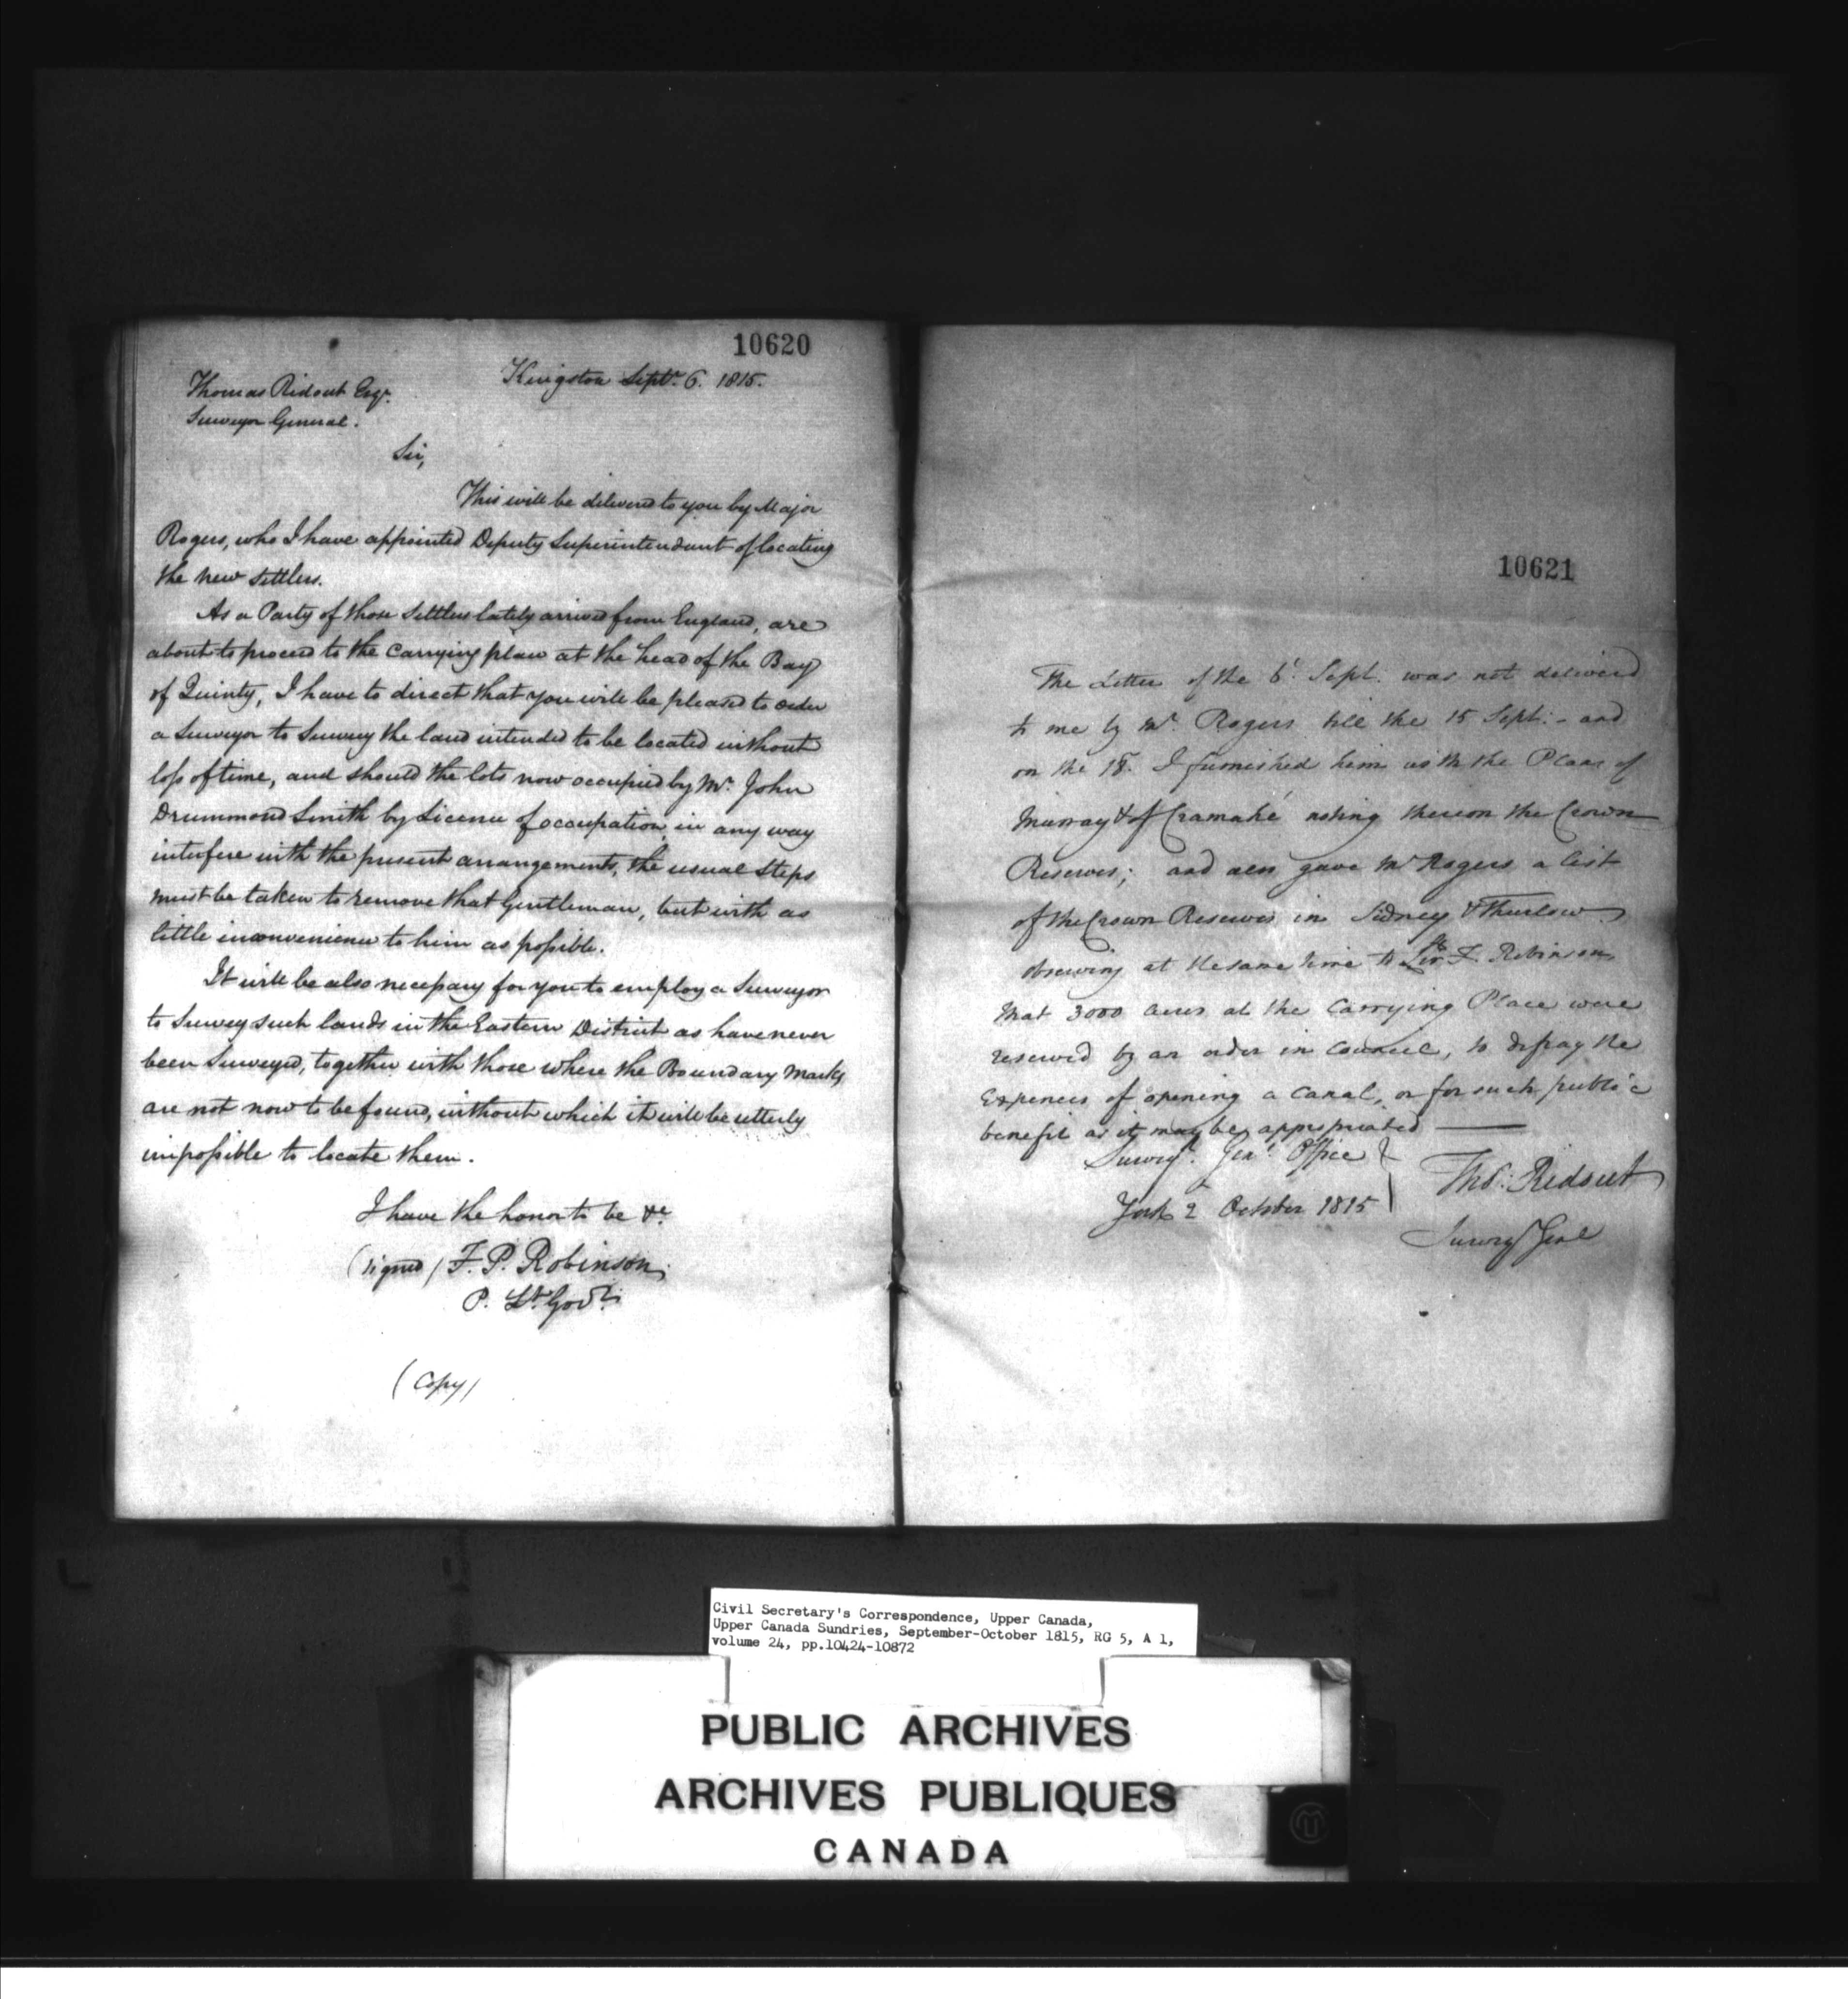 10620
Kingston Septr. 6. 1815.
Thomas Ridout Esqr.
Surveyor General.
Sir,
This will be delivered to you by Major
Rogers, who I have appointed Deputy Superintendant of locating
the new Settlers.
As a Party of those Settlers lately arrived from England, are
about to proceed to the Carrying place at the head of the Bay
of Quinty, I have to direct that you will be pleased to order
a Surveyor to Survey the land intended to be located without
loss of time, and should the lots now occupied by Mr. John
Drummond Smith by Licence of occupation, in any way
interfere with the present arrangements, the usual Steps
must be taken to remove that Gentleman, but with as
little inconvenience to him as possible.
It will be also necessary for you to employ a Surveyor
to Survey such lands in the Eastern District as have never
been Surveyed, together with those where the Boundary Marks
are not now to be found, without which it will be utterly
impossible to locate them.
I have the honor to be &c.
(signed) F. P. Robinson,
P. Lt. Govr.
(Copy)
10621
The Letter of the 6t. Sept. was not delivered
to me by Mr. Rogers till the 15 Sept: - and
on the 18. I furnished him with the Plans of
Murray & of Cramahé noting thereon the Crown
Reserves; and also gave Mr Rogers a list
of the Crown Reserves in Sidney & Thurlow.
at the same time to Sir F. P. Robinson,
that 3000 acres at the Carrying Place were
reserved by an order in Council, to defray the
Expences of opening a Canal, or for such public
benefit as it may be appropriated
Survey r. Genl. Office
York 2 October 1815
Thos. Ridout
Survey r Genl
Civil Secretary's Correspondence, Upper Canada,
Upper Canada Sundries, September-October 1815, RG 5, A 1,
volume 24, pp.10424-10872
PUBLIC ARCHIVES
ARCHIVES PUBLIQUES
CANADA